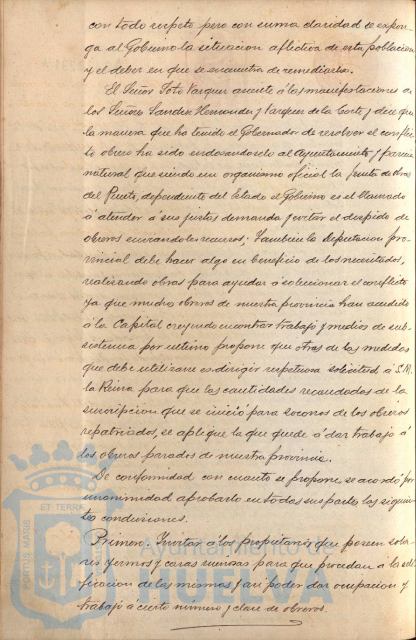 con todo respeto pero con suma claridad se expon-
ga al Gobierno la situacion aflictiva de esta poblacion
y el deber en que se encuentra de remediarla.
El Señor Soto Vazquez asiente á las manifestaciones de
los Señores Sanchez Hernandez y Vazquez de la Corte y dice que
la manera que ha tenido el Gobernador de resolver el conflic-
to obrero ha sido endosandoselo al Ayuntamiento y parecia
natural que siendo un organismo oficial la Junta de obras
del Puerto, dependiente del Estado el Gobierno es el llamado
á atender á sus justas demandas y evitar el despido de
obreros enviandoles recursos; Tambien la Diputacion pro-
vincial debe hacer algo en beneficio de los necesitados,
realizando obras para ayudar á solucionar el conflicto
ya que muchos obreros de nuestra provincia han acudido
á la Capital creyendo encontrar trabajo y medios de sub-
sistencia por ultimo propone que otras de las medidas
que debe utilizarse es dirigir respetuosa solicitud á S.M.
la Reina para que las cantidades recaudadas de la
suscripcion que se inició para socorros de los obreros
repatriados, se aplique la que quede á dar trabajo á
los obreros parados de nuestra provincia.
De conformidad con cuanto se propone, se acordó por
unanimidad aprobarlo en todas sus partes las siguien-
tes condiciones.
Primero: Invitar á los propietarios que poseen sola-
res yermos y casas ruinosas para que procedan á la edi-
ficacion de las mismas y asi poder dar ocupacion y
trabajo á cierto numero y clase de obreros.
PORTUS MARIS ET TERRAE
Ayuntamiento de
HUELVA